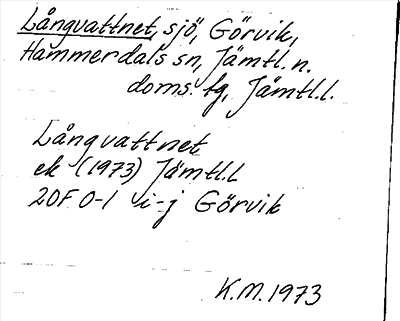 Långvattnet, sjö, Görvik,
Hammerdals sn, Jämtl. n.
doms. fg, Jämtl.l.
Långvattnet
ek (1973) Jämtl.l
20F 0-1 i-j Görvik
K.M. 1973